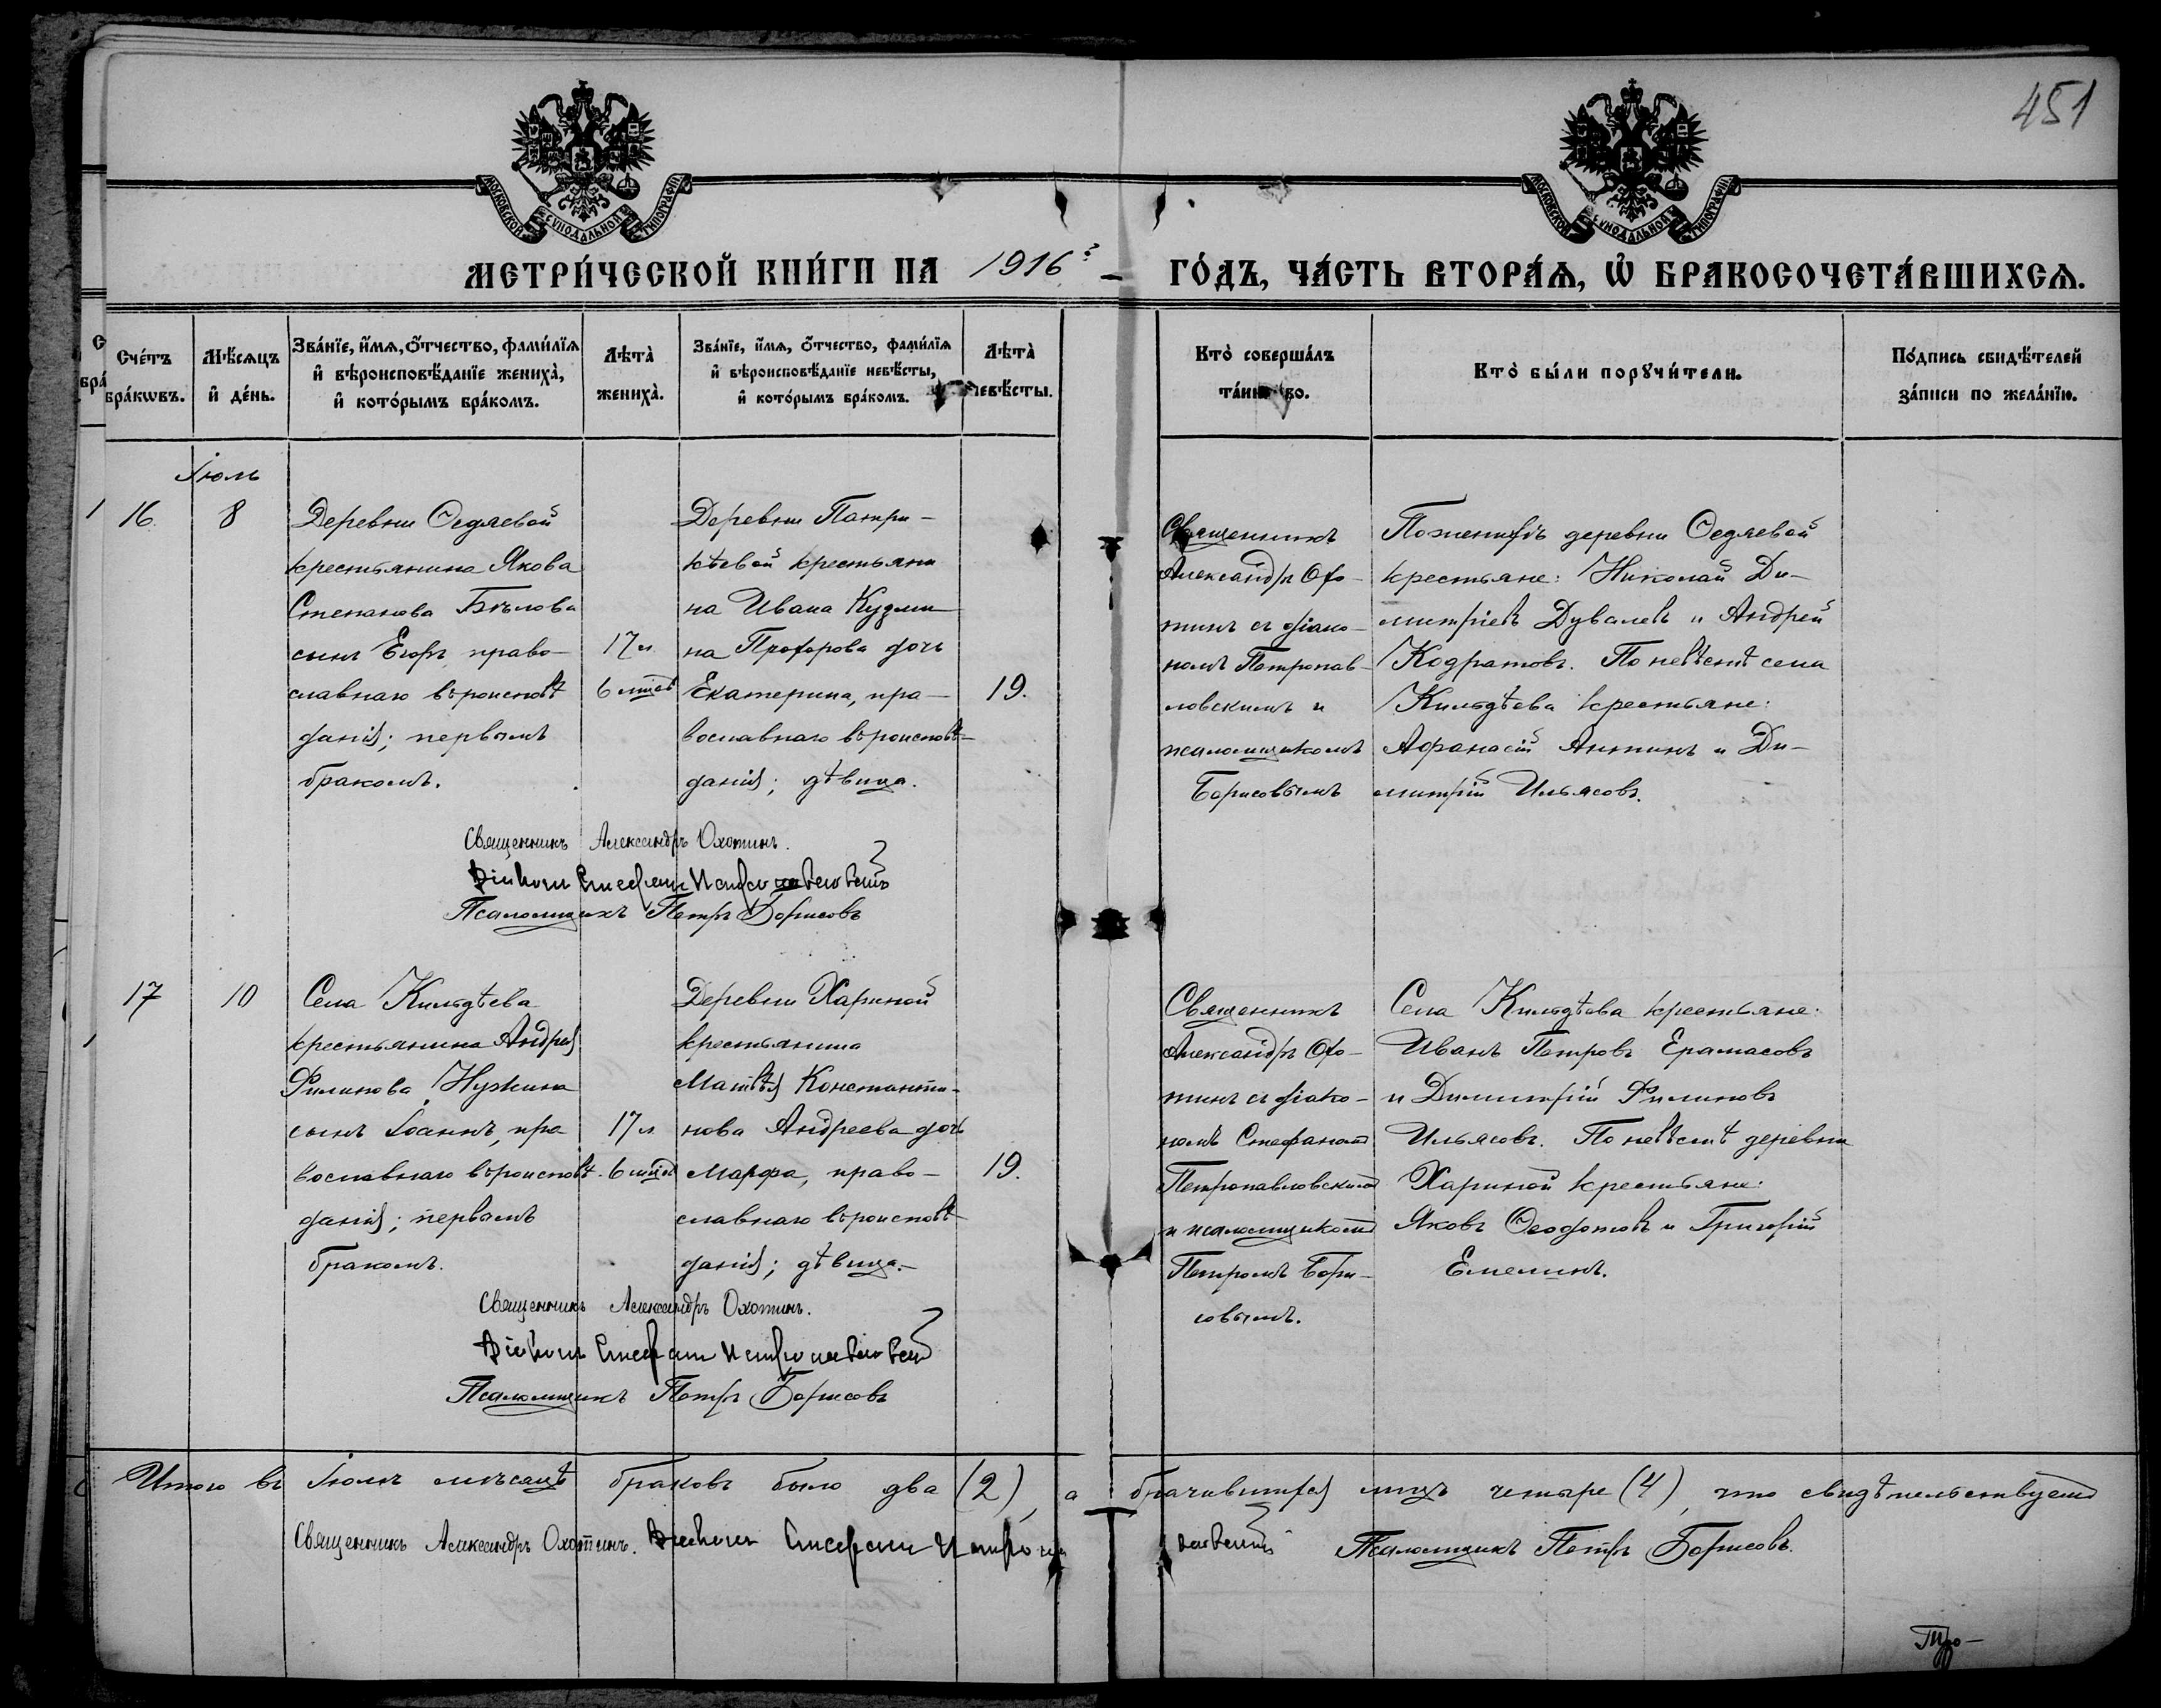 451
МОСКОВСКОЙ СѴНОДАЛЬНОЙ ТИПОГРАФІИ
МОСКОВСКОЙ СѴНОДАЛЬНОЙ ТИПОГРАФІИ
МЕТРИ́ЧЕСКОЙ КНИ́ГИ НА 1916 ГО́ДЪ, ЧА́СТЬ ВТОРА́Ѧ, Ѡ҆ БРАКОСОЧЕТА́ВШИХСѦ.
Сче́тъ
бра́кѡвъ.
Мѣ́сѧцъ
и҆ де́нь.
Зва́нїе, и҆́мѧ, ѻ҆́тчество, фами́лїѧ
и҆ вѣроисповѣ́данїе жениха̀,
и҆ кото́рымъ бра́комъ.
Лѣта̀
жениха̀.
Зва́нїе, и҆́мѧ, ѻ҆́тчество, фами́лїѧ
и҆ вѣроисповѣ́данїе невѣ́сты,
и҆ кото́рымъ бра́комъ.
Лѣта̀
невѣ́сты.
Кто̀ соверша́лъ
та́инство.
Кто̀ бы́ли порꙋчи́тели.
По́дпись свидѣ́телей
за́писи по жела́нїю.
Іюль
16.
8
Деревни Ѳедяевой
крестьянина Якова
Степанова Бѣлова
сынъ Егоръ, право-
славнаго вѣроисповѣ
данія; первымъ
бракомъ.
17 л.
6 мѣсѣ
Деревни Патри-
кѣевой крестьяни
на Ивана Кузми-
на Прохорова дочь
Екатерина, пра-
вославнаго вѣроисповѣ-
данія; дѣвица.
19.
Священникъ
Александръ Охо-
тинъ съ діако-
номъ Петропав-
ловскимъ и
псаломщикомъ
Борисовымъ
По женихѣ деревни Ѳедяевой
крестьяне: Николай Ди-
митріевъ Дувалевъ и Андрей
Кодратовъ. По невѣстѣ села
Кильдѣева крестьяне:
Аѳанасій Антинъ и Ди-
митрій Ильясовъ.
Священникъ Александръ Охотинъ.
Діаконъ Стефанъ Петропавловскій
Псаломщикъ Петръ Борисовъ
17
10
Села Кильдѣева
крестьянина Андрея
Филипова Нужина
сынъ Іоаннъ, пра
вославнаго вѣроисповѣ-
данія; первымъ
бракомъ.
17 л.
6 мѣсѣ
Деревни Хариной
крестьянина
Матвѣя Константи-
нова Андреева дочь
Марѳа, право-
славнаго вѣроисповѣ-
данія; дѣвица.-
19.
Священникъ
Александръ Охо-
тинъ съ діако-
номъ Стефаномъ
Петропавловскимъ
и псаломщикомъ
Петромъ Бори-
совымъ.
Села Кильдѣева крестьяне:
Иванъ Петровъ Ерамасовъ
и Димитрій Филиповъ
Ильясовъ. По невѣстѣ деревни
Хариной крестьяне:
Яковъ Ѳеодотовъ и Григорій
Емелинъ.
Священникъ Александръ Охотинъ.
Діаконъ Стефанъ Петропавловскій
Псаломщикъ Петръ Борисовъ
Итого въ Іюлѣ мѣсяцѣ браковъ было два (2), а брачившихся лицъ четыре (4), что свидѣтельствуемъ
Священникъ Александръ Охотинъ. Діаконъ Стефанъ Петропавловскій Псаломщикъ Петръ Борисовъ.